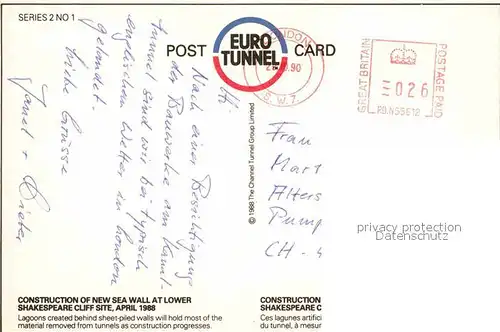 SERIES 2 NO 1
POST CARD
EURO
TUNNEL
LONDON
90
S.W.7.
GREAT BRITAIN
POSTAGE PAID
026
P.B.N
Nach einer Besichtigung
der Bauwerke am Kanal-
tunnel sind wir bei typisch
englischem Wetter in London
gelandet.
Liebe Grüsse
Dieter
© 1988 The Channel Tunnel Group Limited
Frau
CH -
privacy protection
Oldthing.de
CONSTRUCTION OF NEW SEA WALL AT LOWER
SHAKESPEARE CLIFF SITE, APRIL 1988
Lagoons created behind sheet-piled walls will hold most of the
material removed from tunnels as construction progresses.
CONSTRUCTION
SHAKESPEARE C
Ces lagunes artifici
du tunnel, à mesur